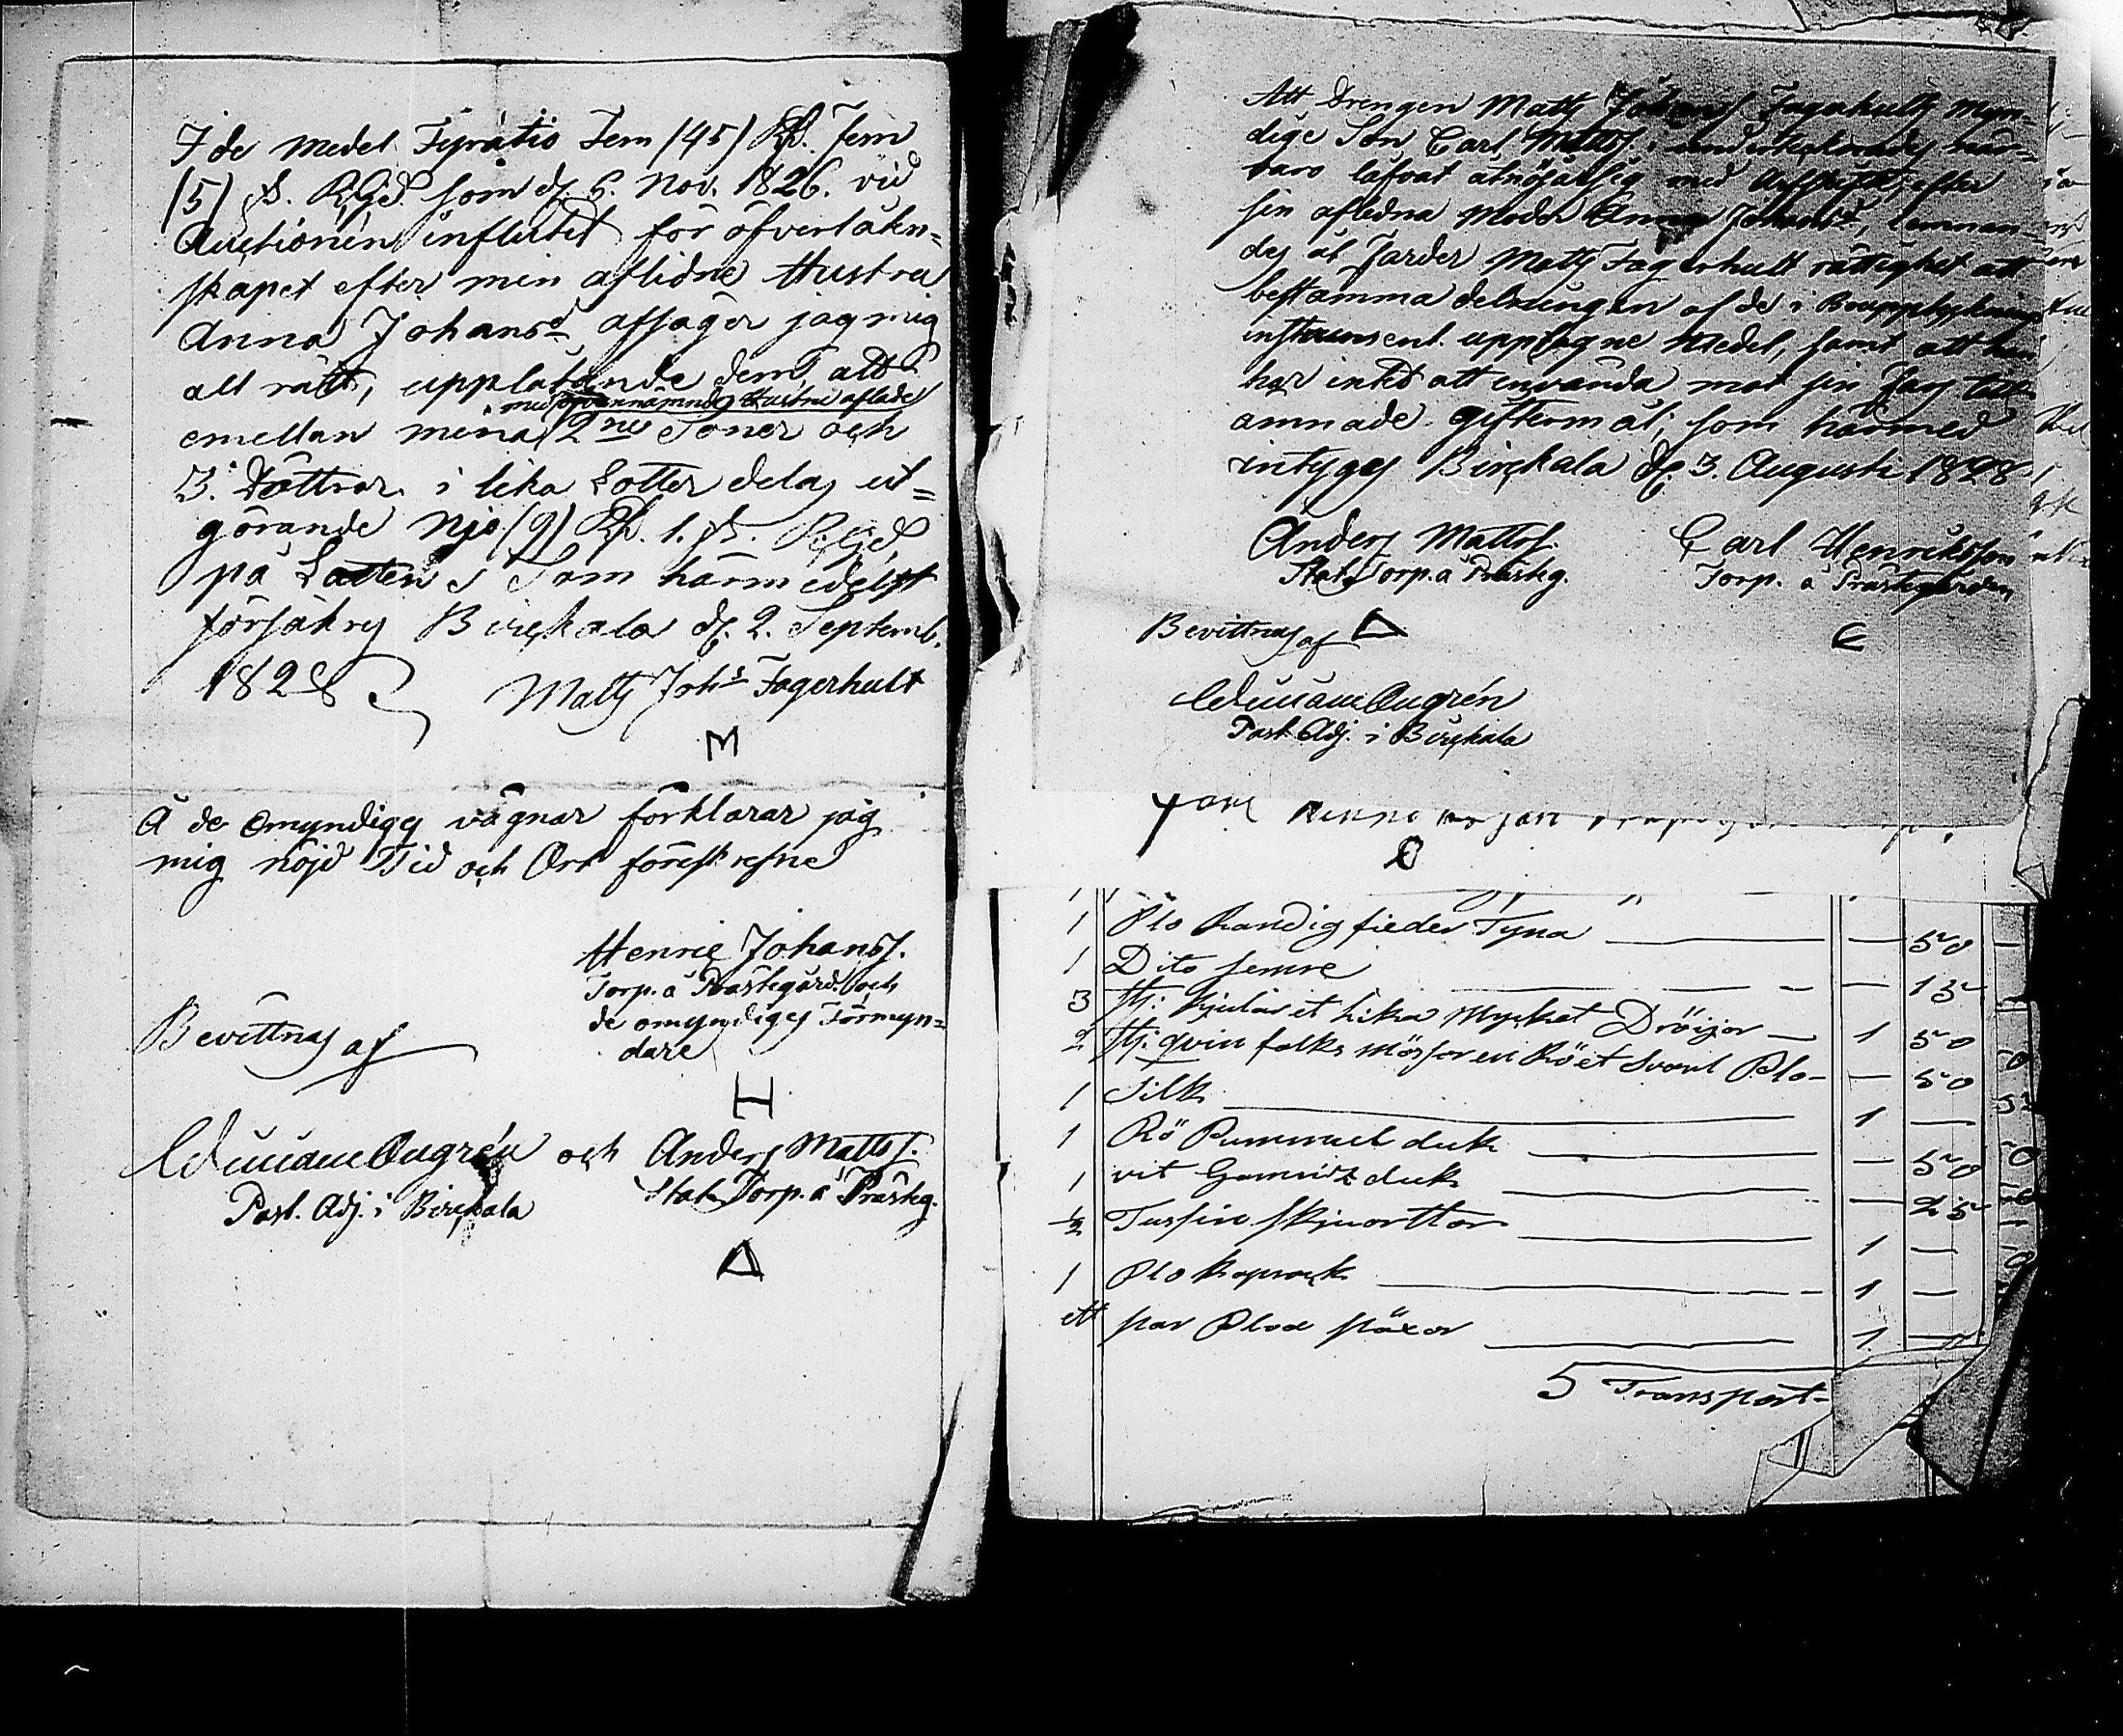 I de medel Fyratio Fem (45) Rd. Fem
(5) s. RGd. som d. 6. Nov. 1826. vid
Auctionen influtit för öfverlåkn=
skapet efter min aflidne Hustru
Anna Johansd. afsäger jag mig
all rätt, upplåtande dem att
med ofvannämnde Hustru aflade
emellan mina 2ne Söner och
3. Döttrar i lika Lotter delas ut=
görande Njo (9) Rd. 1. s. RGd.
på Lotten; Som härmedelst
försäkras Birckala d. 2. Septemb.
1828
Matts Johs Fagerhult
M
Å de Omyndigas vägnar förklarar jag
mig nöjd Tid och Ort föreskrefne
Henric Johanss.
Torp. å Prästegård. och
de omyndigas Förmyn=
dare
H
Bevittnas af
Augrén och Anders Matts.
Past. Adj. i Birckala
Stat Torp. å Prästeg.
Δ
Att Drengen Matts Johans Fagerhults myn=
dige Son Carl Matts. undertecknades när=
varo låfvat åtnöja sig med Arfskifte efter
sin aflidna Moder Anna Johansd., lemnan=
des åt Fader Matts Fagerhult rättighet att
bestämma delningen af de i Bouppteknings
instrument upptagne Medel, samt att han
har intet att invända mot sin Fars till=
ämnade giftermål; som härmed
intygas Birckala d. 3. Augusti 1828
Anders Matts.
Stat Torp. å Prästeg.
Carl Henriksson
Torp. å Prästegården
Bevittnas af Δ
C
Augrén
Past. Adj. i Birckala
1 Blo Randig fieder Tyna — 50
1 Dito semre — 15
3 st: kjular et lika Mycket Dröijor — 1 50
2 st: qvin folks mössor en Rö et Svart Blo — 50
1 Silk — 1 —
1 Rö Bummul duk — 50
1 vit Gamalt duk — 25
1/2 Tussin skjorttor — 1 —
1 Blo kaprock — 1 —
ett par Bloa pöxor — 1 —
5 Transport=